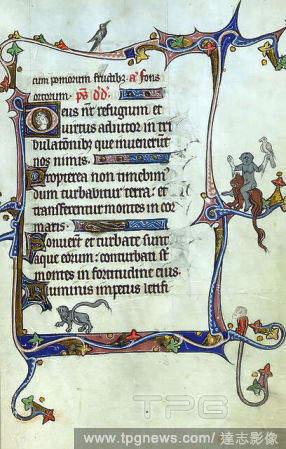 cum pomorum fructibz a᷑ fons
ortorum. ps dd.
Deus nr̃ refugium et
virtus adiutor in tri
bulationibz que invenerũt
nos nimis.
Propterea non timebim᷒
dum turbabitur terra: et
transferentur montes in cor
maris.
Sonuerũt et turbate sunt
aque eorum: conturbati st̃
montes in fortitudine eius.
Fluminis impetus letifi
TPG
www.tpgnews.com/達志影像